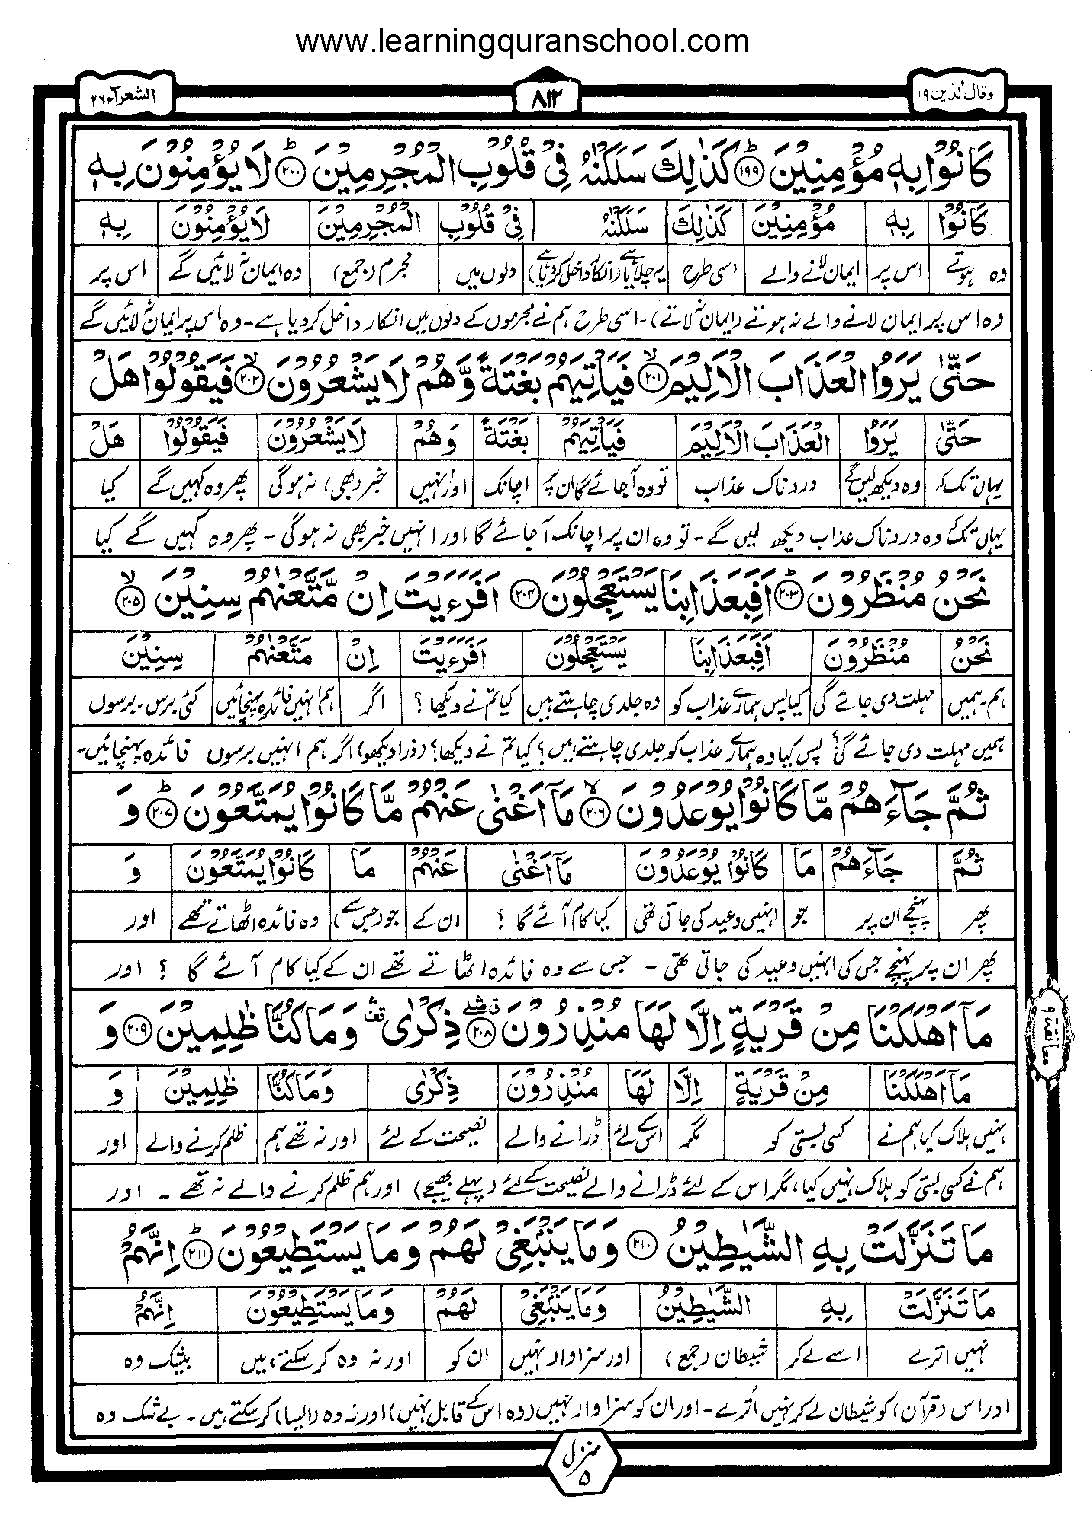 www.learningquranschool.com
وقال الذین ۱۹
۸۱۲
الشعرآء ۲۶
كَانُوْا بِهٖ مُؤْمِنِيْنَ ۱۹۹ كَذٰلِكَ سَلَكْنٰهُ فِيْ قُلُوْبِ الْمُجْرِمِيْنَ ۲۰۰ لَا يُؤْمِنُوْنَ بِهٖ
كَانُوْا بِهٖ مُؤْمِنِيْنَ كَذٰلِكَ سَلَكْنٰهُ فِيْ قُلُوْبِ الْمُجْرِمِيْنَ لَا يُؤْمِنُوْنَ بِهٖ
وہ ہوتے اس پر ایمان لانے والے اسی طرح یہ چلایا ہے (انکار داخل کردیا ہے) دلوں میں مجرم (جمع) وہ ایمان نہ لائیں گے اس پر
وہ اس پر ایمان لانے والے نہ ہوتے (ایمان نہ لاتے)۔ اسی طرح ہم نے مجرموں کے دلوں میں انکار داخل کردیا ہے۔ وہ اس پر ایمان نہ لائیں گے
حَتّٰى يَرَوُا الْعَذَابَ الْاَلِيْمَ ۲۰۱ فَيَاْتِيَهُمْ بَغْتَةً وَّهُمْ لَا يَشْعُرُوْنَ ۲۰۲ فَيَقُوْلُوْا هَلْ
حَتّٰى يَرَوُا الْعَذَابَ الْاَلِيْمَ فَيَاْتِيَهُمْ بَغْتَةً وَهُمْ لَا يَشْعُرُوْنَ فَيَقُوْلُوْا هَلْ
یہاں تک کہ وہ دیکھ لیں گے دردناک عذاب تو وہ آجائے گا ان پر اچانک اور انہیں خبر (بھی) نہ ہوگی پھر وہ کہیں گے کیا
یہاں تک کہ وہ دردناک عذاب دیکھ لیں گے۔ تو وہ ان پر اچانک آجائے گا اور انہیں خبر بھی نہ ہوگی۔ پھر وہ کہیں گے کیا
نَحْنُ مُنْظَرُوْنَ ۲۰۳ اَفَبِعَذَابِنَا يَسْتَعْجِلُوْنَ ۲۰۴ اَفَرَءَيْتَ اِنْ مَّتَّعْنٰهُمْ سِنِيْنَ ۲۰۵
نَحْنُ مُنْظَرُوْنَ اَفَبِعَذَابِنَا يَسْتَعْجِلُوْنَ اَفَرَءَيْتَ اِنْ مَتَّعْنٰهُمْ سِنِيْنَ
ہم۔ہمیں مہلت دی جائے گی کیا پس ہمارے عذاب کو وہ جلدی چاہتے ہیں کیا تم نے دیکھا؟ اگر ہم انہیں فائدہ پہنچائیں کئی برس۔برسوں
ہمیں مہلت دی جائے گی؟ پس کیا وہ ہمارے عذاب کو جلدی چاہتے ہیں؟ کیا تم نے دیکھا؟ (ذرا دیکھو) اگر ہم انہیں برسوں فائدہ پہنچائیں۔
ثُمَّ جَآءَهُمْ مَّا كَانُوْا يُوْعَدُوْنَ ۲۰۶ مَآ اَغْنٰى عَنْهُمْ مَّا كَانُوْا يُمَتَّعُوْنَ ۲۰۷ وَ
ثُمَّ جَآءَهُمْ مَا كَانُوْا يُوْعَدُوْنَ مَآ اَغْنٰى عَنْهُمْ مَا كَانُوْا يُمَتَّعُوْنَ وَ
پھر پہنچے ان پر جو انہیں وعید کی جاتی تھی کیا کام آئے گا؟ ان کے جو (جس سے) وہ فائدہ اٹھاتے تھے اور
پھر ان پر پہنچے جس کی انہیں وعید کی جاتی تھی۔ جس سے وہ فائدہ اٹھاتے تھے ان کے کیا کام آئے گا؟ اور
مَآ اَهْلَكْنَا مِنْ قَرْيَةٍ اِلَّا لَهَا مُنْذِرُوْنَ ۲۰۸ ذِكْرٰى وَمَا كُنَّا ظٰلِمِيْنَ ۲۰۹ وَ
مَآ اَهْلَكْنَا مِنْ قَرْيَةٍ اِلَّا لَهَا مُنْذِرُوْنَ ذِكْرٰى وَمَا كُنَّا ظٰلِمِيْنَ وَ
نہیں ہلاک کیا ہم نے کسی بستی کو مگر اس کے لئے ڈرانے والے نصیحت کے لئے اور نہ تھے ہم ظلم کرنے والے اور
ہم نے کسی بستی کو ہلاک نہیں کیا، مگر اس کے لئے ڈرانے والے نصیحت کے لئے (پہلے بھیجے) اور ہم ظلم کرنے والے نہ تھے۔ اور
مَا تَنَزَّلَتْ بِهِ الشَّيٰطِيْنُ ۲۱۰ وَمَا يَنْۢبَغِيْ لَهُمْ وَمَا يَسْتَطِيْعُوْنَ ۲۱۱ اِنَّهُمْ
مَا تَنَزَّلَتْ بِهِ الشَّيٰطِيْنُ وَمَا يَنْۢبَغِيْ لَهُمْ وَمَا يَسْتَطِيْعُوْنَ اِنَّهُمْ
نہیں اترے اسے لے کر شیطان (جمع) اور سزاوار نہیں ان کو اور نہ وہ کر سکتے ہیں بیشک وہ
اور اس (قرآن) کو شیطان لے کر نہیں اُترے۔ اور ان کو سزاوار نہیں (وہ اس کے قابل نہیں) اور نہ وہ (ایسا) کر سکتے ہیں۔ بے شک وہ
منزل ۵